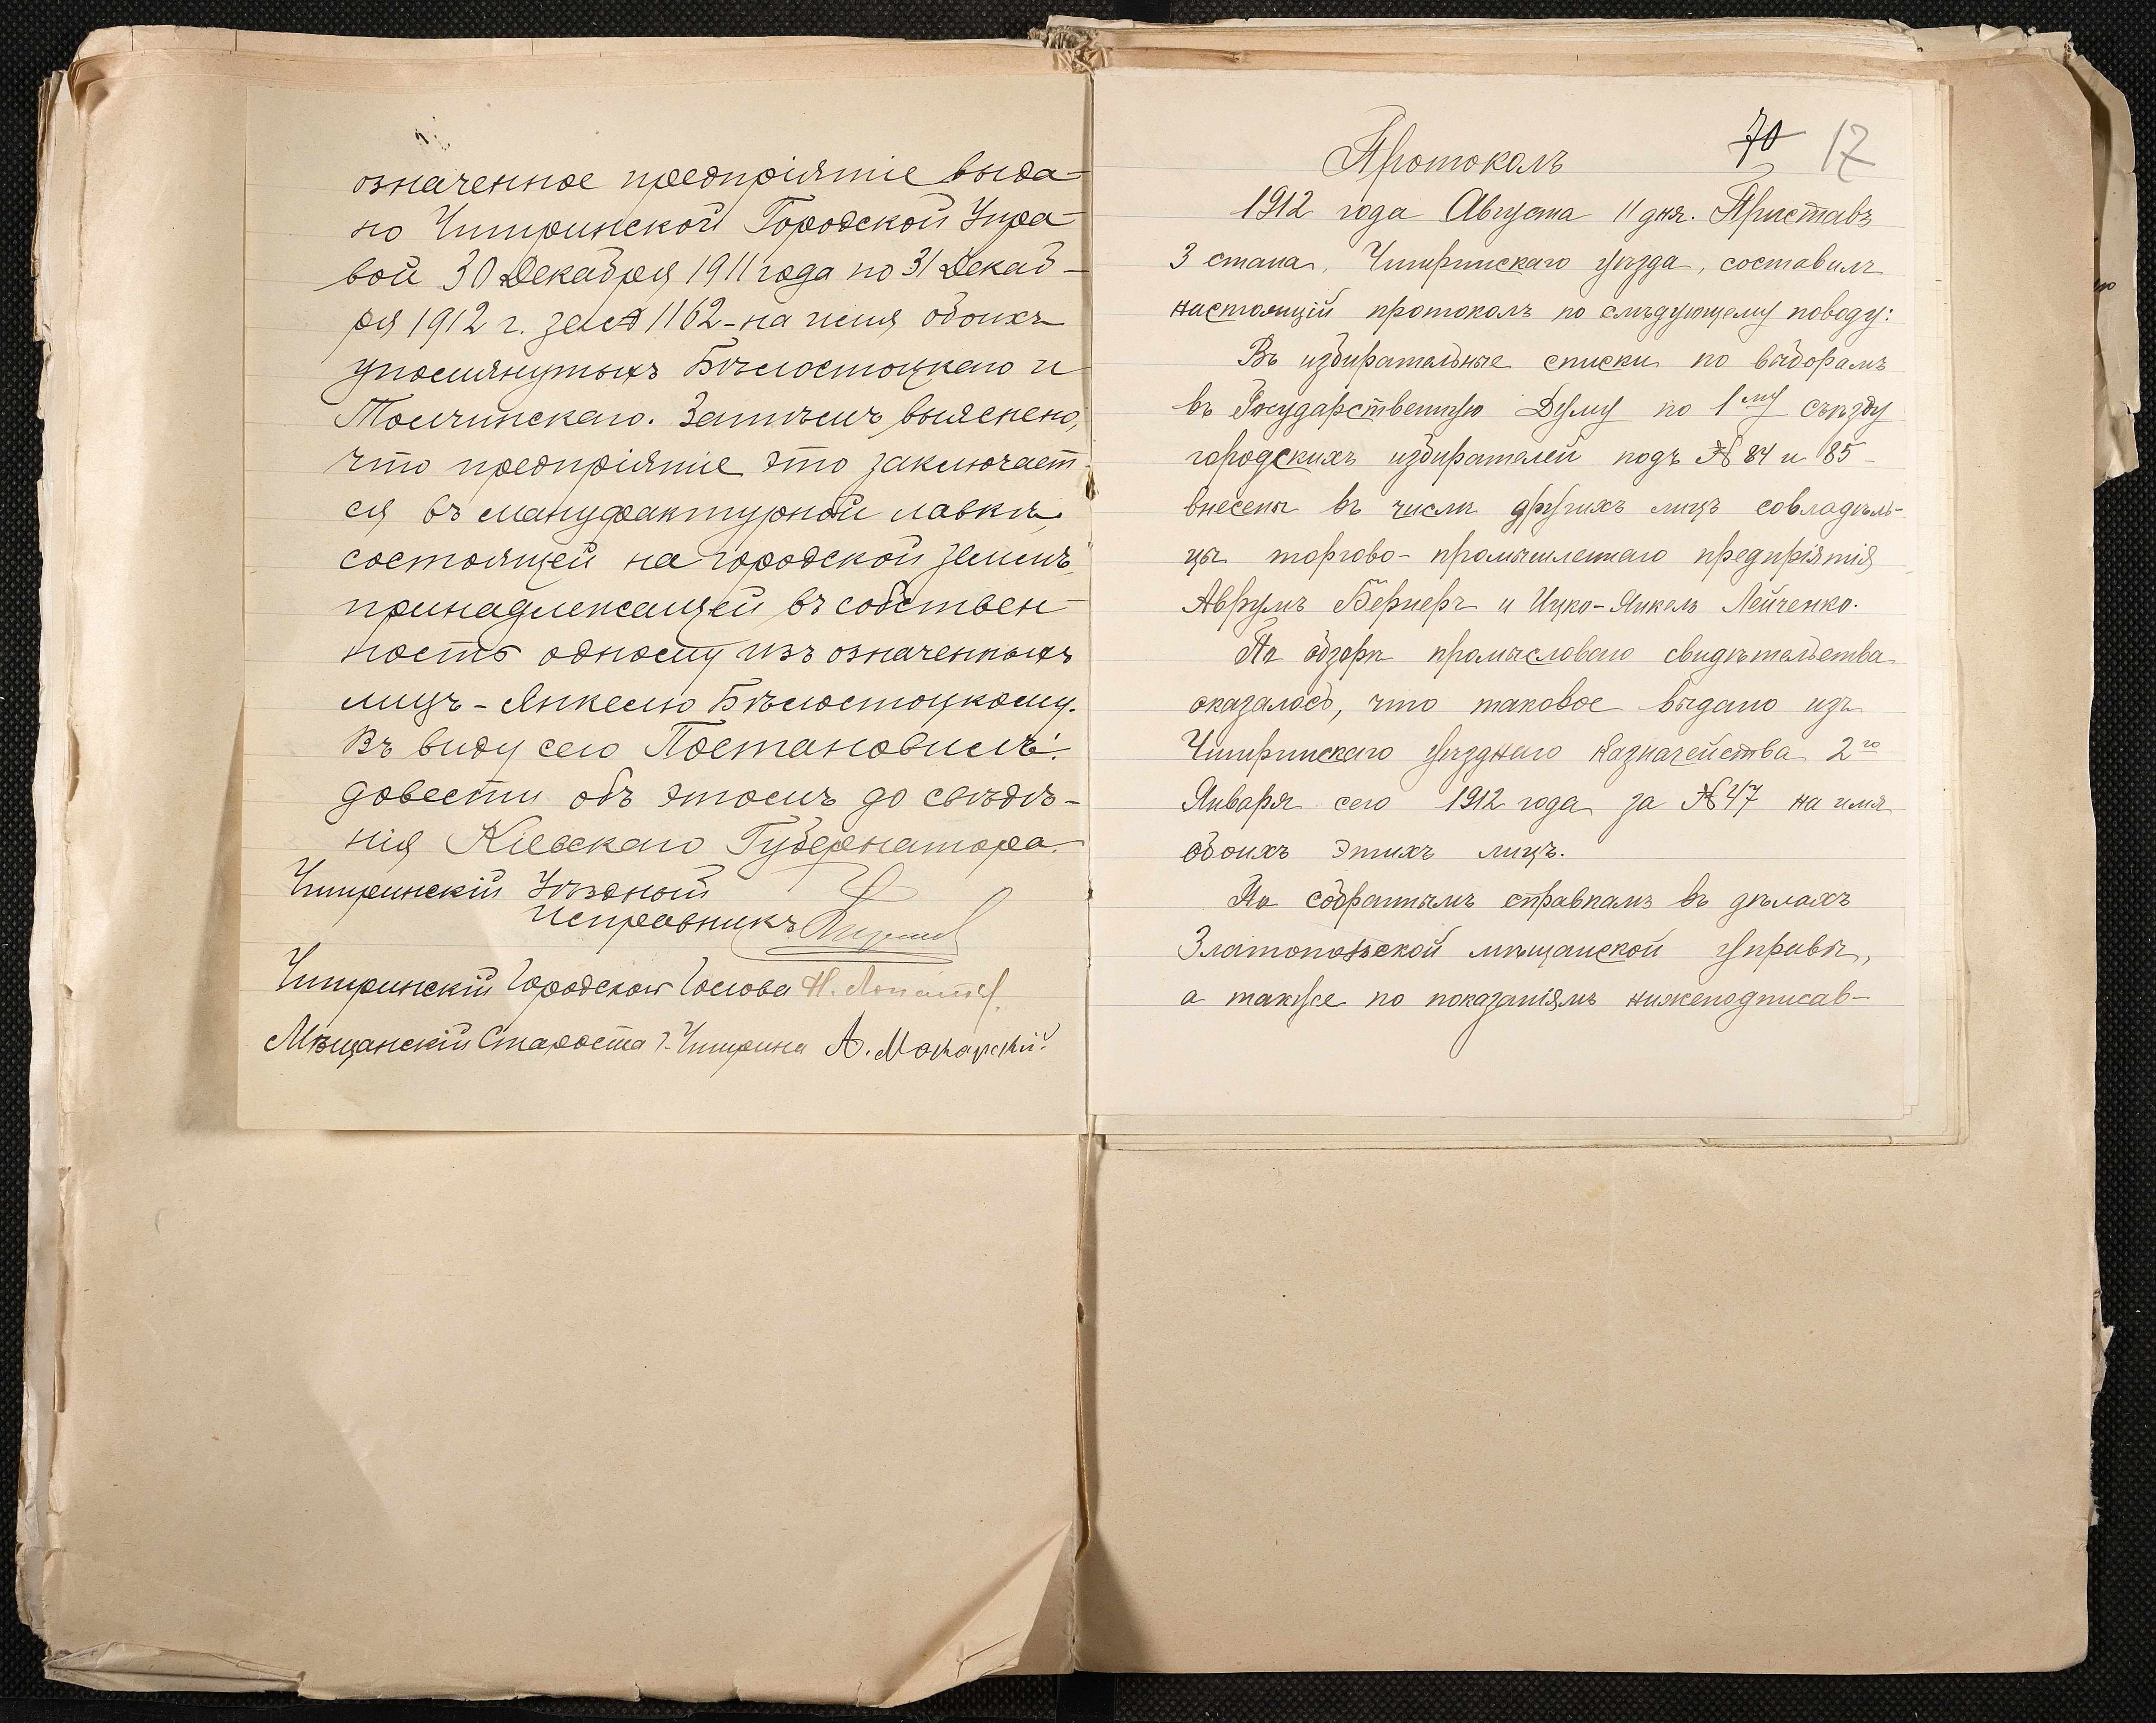 означенное предпріятіе выда-
но Чигиринской Городской Упра-
вой 30 Декабря 1911 года по 31 Декаб-
ря 1912 г. за № 1162 - на имя обоихъ
упомянутыхъ Бѣлостоцкаго и
Толчинскаго. Затѣмъ выяснено,
что предпріятіе это заключает-
ся въ мануфактурной лавкѣ,
состоящей на городской землѣ,
принадлежащей въ собствен-
ность одному изъ означенныхъ
лицъ - Янкелю Бѣлостоцкому.
Въ виду сего Постановилъ:
довести объ этомъ до свѣдѣ-
нія Кіевскаго Губернатора.
Чигиринскій Уѣздный
Исправникъ
Чигиринскій Городской Голова Н.
Мѣщанскій Староста г. Чигирина А. Макарскій
70 17
Протоколъ
1912 года Августа 11 дня. Приставъ
3 стана, Чигиринскаго уѣзда, составилъ
настоящій протоколъ по слѣдующему поводу:
Въ избирательные списки по выборамъ
въ Государственную Думу по 1му съѣзду
городскихъ избирателей подъ № 84 и 85 -
внесены въ числѣ другихъ лицъ совладѣль-
цы торгово-промышленнаго предпріятія
Аврумъ Бернеръ и Ицко-Янкель Лейченко.
По обзорѣ промысловаго свидѣтельства
оказалось, что таковое выдано изъ
Чигиринскаго Уѣзднаго Казначейства 2го
Января сего 1912 года за № 47 на имя
обоихъ этихъ лицъ.
По собраннымъ справкамъ въ дѣлахъ
Златопольской мѣщанской управы,
а также по показаніямъ нижеподписав-